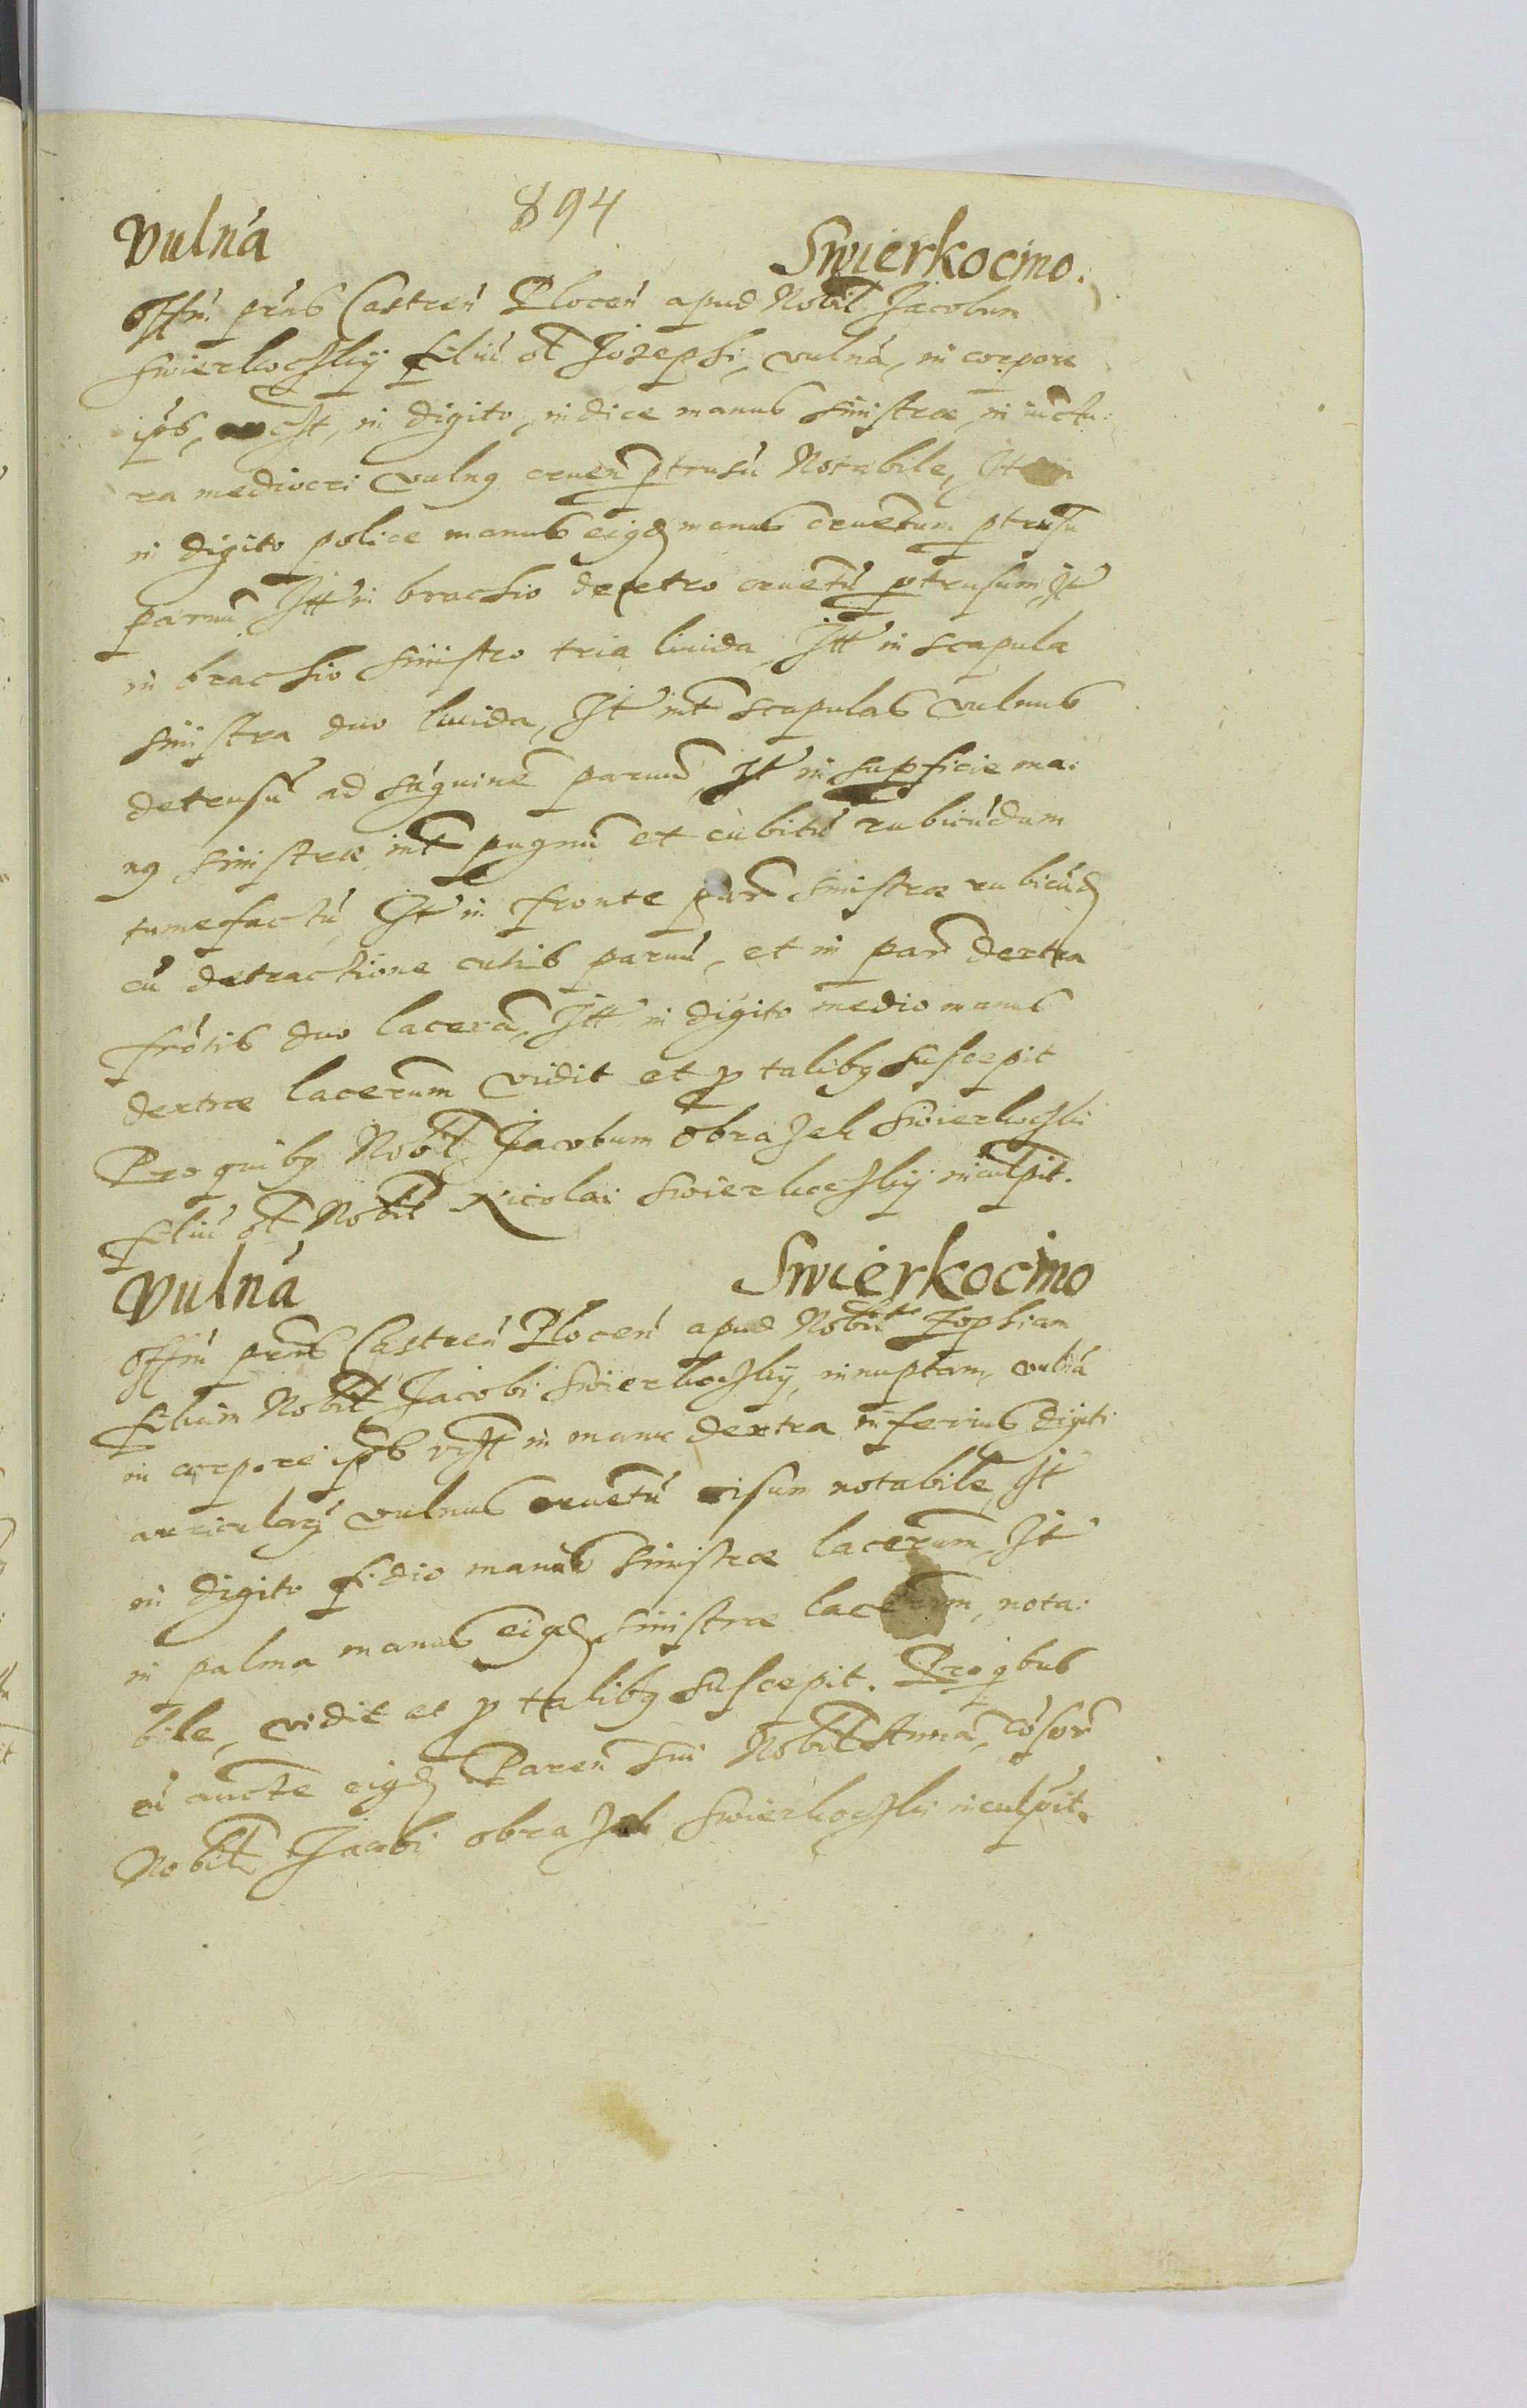 894
Vulná Swierkocino.
Offú prńs Castreń Ploceń apud Nobil Jacobum
Swierkoczkÿ filiú ol Jozephi, vulná, in corpore
ipś, vczt, in digito, indice manus sinistræ, in iunctu:
ra mediocri vulng cruen ptrusú Notabile, It in
in digito police manus eigd manus cruentum ptrusu
parvu Itt in brachio dextro cruentú ptrusum, It
in brachio sinistro tria liuida, Itt in scapula
sinistra duo liuida, It int scapulas vulnus
detrusu ad ságuine paruu, It in supficie ma:
ng sinistræ, int pugnu et cubitú rubicúdum
tumefactú It in fronte part sinistræ rubicúd
cú detractione cutis paruú, et in par dextra
frótis duo lacera, Itt in digito medio manus
dextræ lacerum vidit et p talibg suscepit
Pro quibg Nobil Jacobum Obrazek Swierkoczki
filiú ol Nobil Nicolai Swierkoczkÿ inculpit.
Vulná Swierkocino
Offú prns Castreń Ploceń apud Nobil Zophiam
filiam Nobil Jacobi Swierkoczkÿ, innuptam, vulná
in corpore ips vczt in manu dextra inferius digiti
auricularÿ vulnus cruentú cisum notabile, It
in digito fidio manus sinistræ lacerum, It
in palma manus eigd sinistræ lacerum, nota:
bile, vidit et p talibg suscepit. Pro qbus
cú aucte eigd Paren sui Nobil Anna, cósor
Nobil Jacobi Obrazek Swierkoczki inculpit.